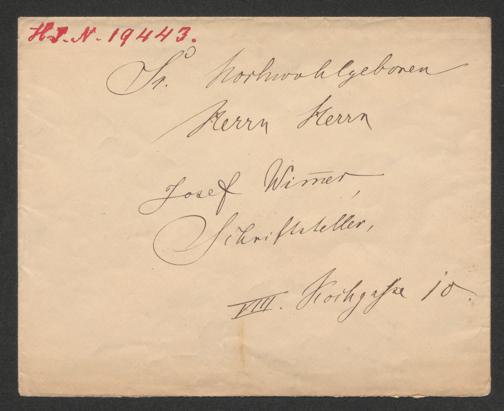 H.I.N. 19443.
Sr. Hochwohlgeboren
Herrn Herrn
Josef Wim̄er,
Schriftsteller,
VIII. Kochgasse 10.